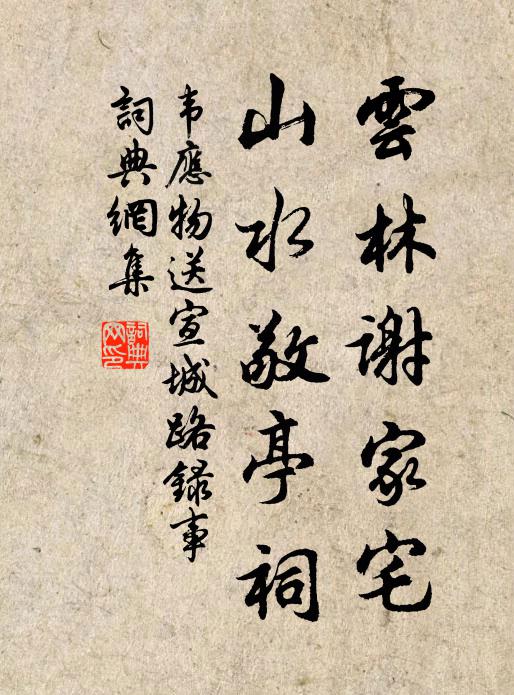 雲林謝家宅
山水敬亭祠
韦應物送宣城路録事
詞典網集
詞典网印